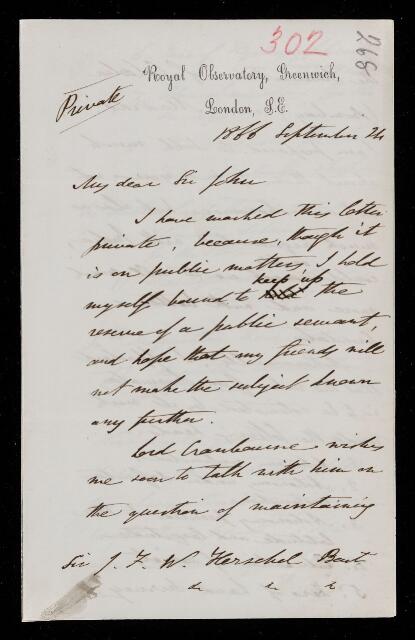 302
268
Royal Observatory, Greenwich,
London, S.E.
Private
1866 September 24
My dear Sir John
I have marked this letter
private, because, though it
is on public matters, I hold
myself bound to keep up the
reserve of a public servant,
and hope that my friends will
not make the subject known
any further.
Lord Cranbourne wishes
me soon to talk with him on
the question of maintaining
Sir J. F. W. Herschel Bart
&c &c &c